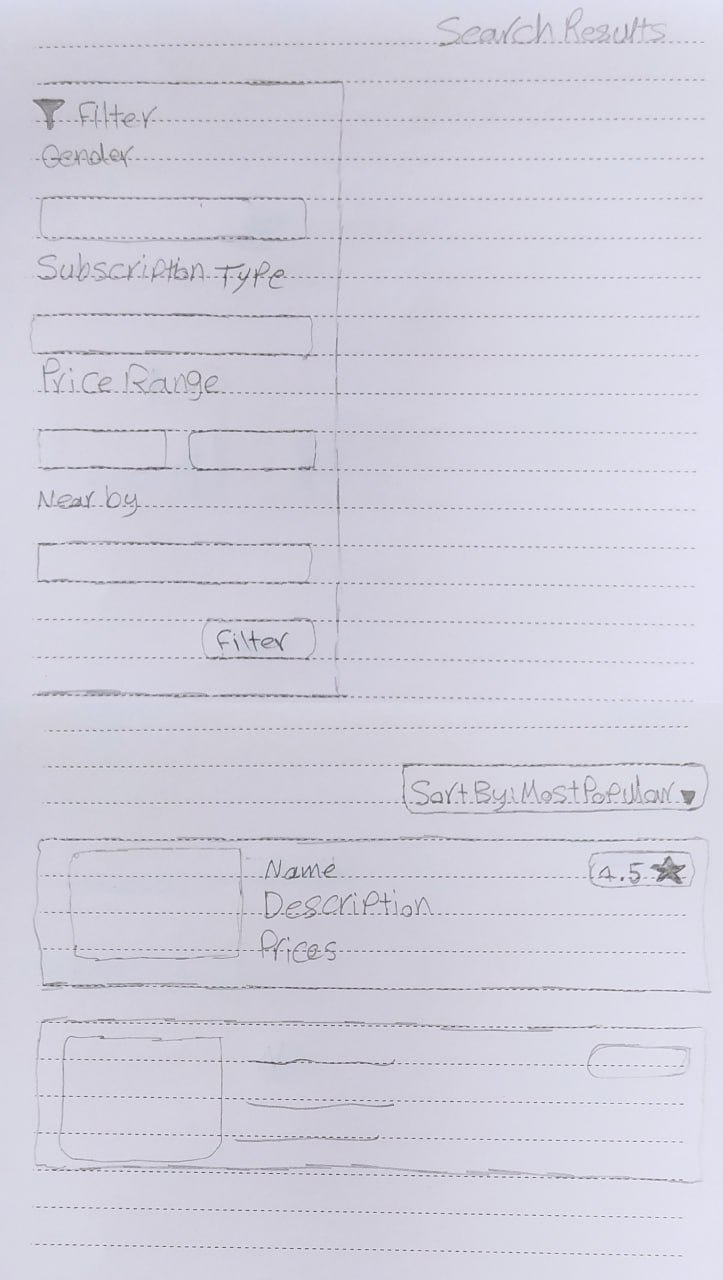 Search Results
Filter
Gender
Subscription Type
Price Range
Near by
Filter
Sort By: Most Popular
Name
4.5
Description
Prices